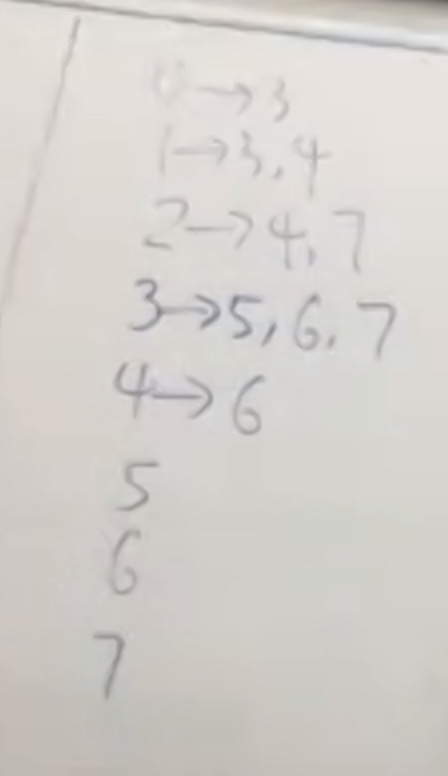 0→3
1→3,4
2→4,7
3→5,6,7
4→6
5
6
7